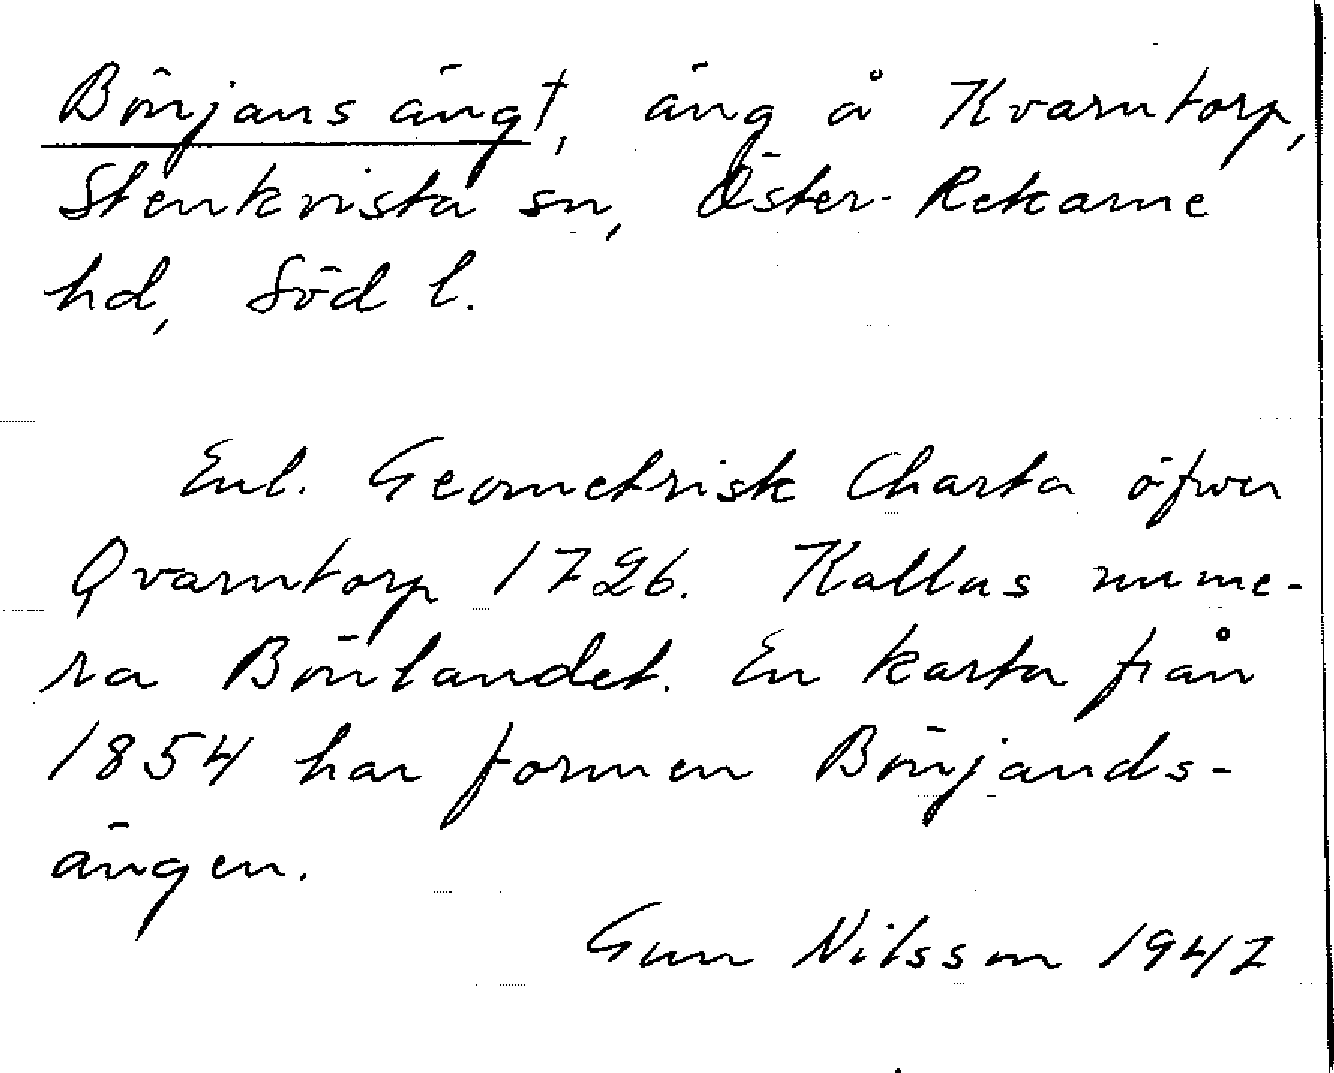 Börjans äng†, äng å Kvarntorp,
Stenkvista sn, Öster-Rekarne
hd, Söd l.
Enl. Geometrisk Charta öfwer
Qvarntorp 1726. Kallas nume-
ra Börlandet. En karta från
1854 har formen Börjands-
ängen.
Gun Nilsson 1947